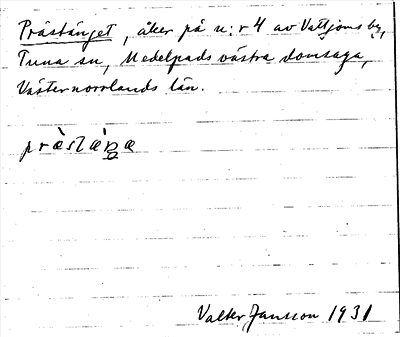 Prästänget, åker på n:r 4 av Vattjoms by,
Tuna sn, Medelpads västra domsaga,
Västernorrlands län.
prǽstǽŋa
Valter Jansson 1931